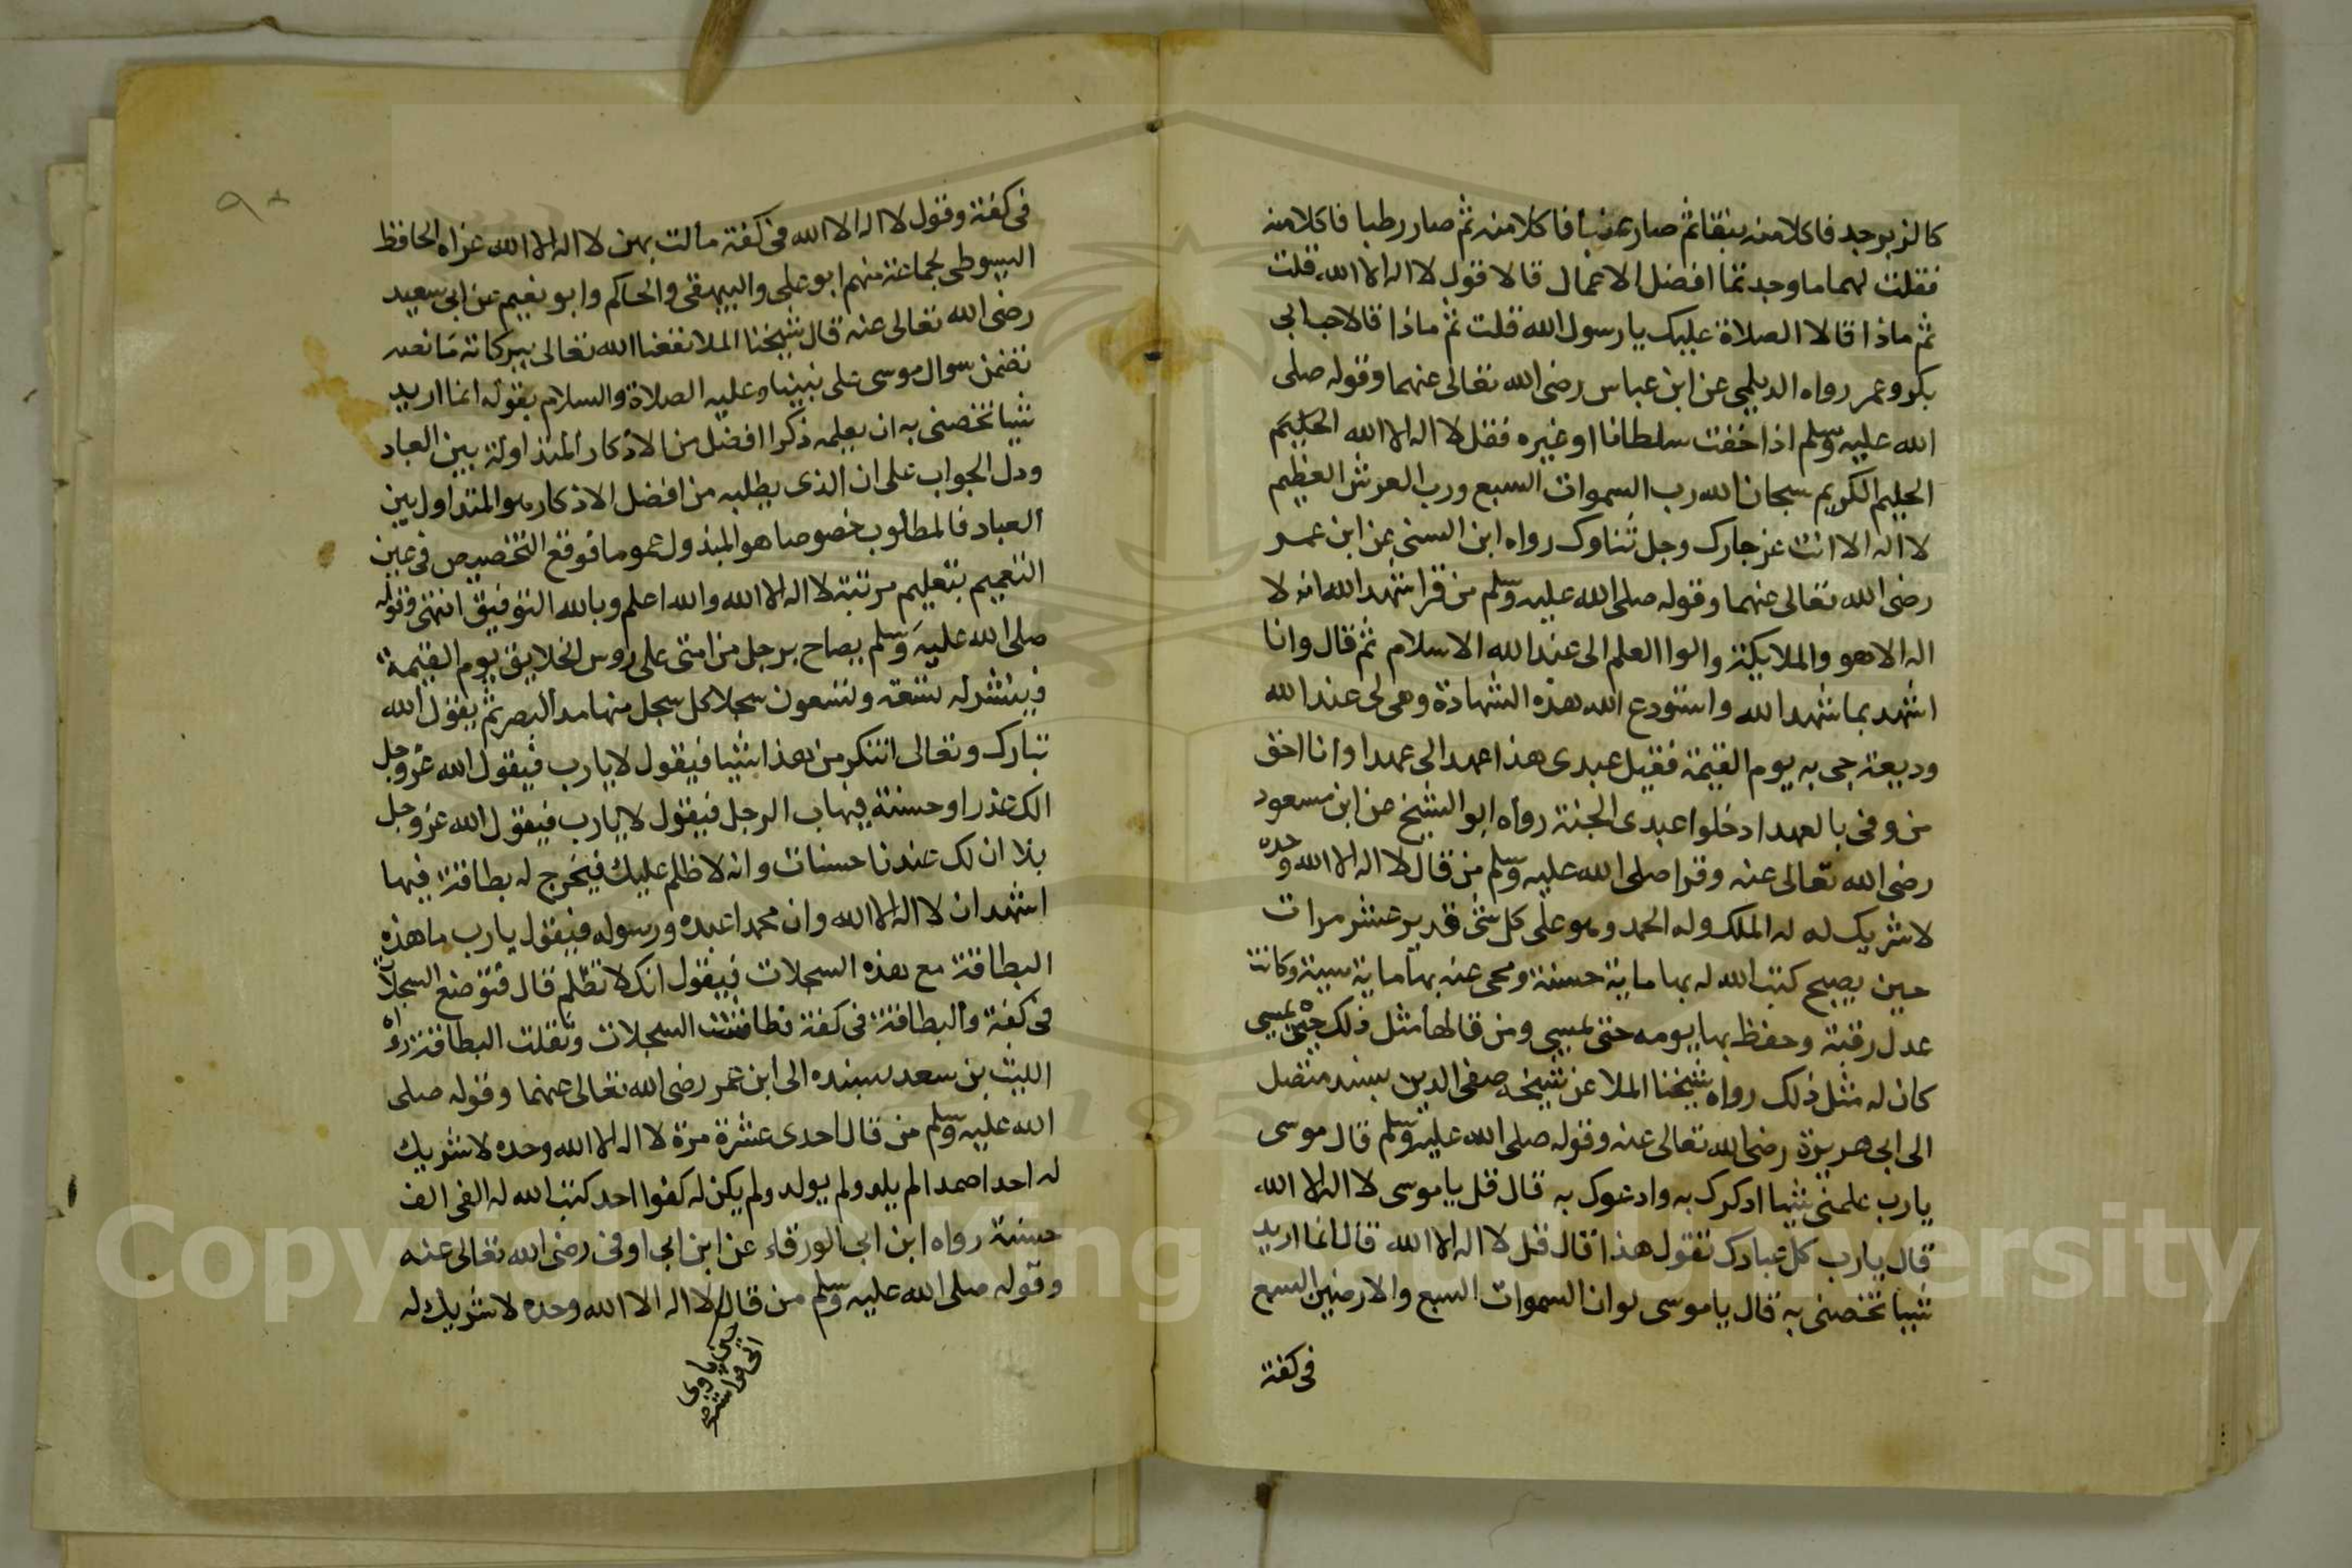 كالزبرجد فاكلا منه نبقا ثم صار عنبا فاكلا منه ثم صار رطبا فاكلا منه
فقلت لهما ما وجدتما افضل الاعمال قالا قول لا اله الا الله قلت
ثم ماذا قالا الصلاة عليك يا رسول الله قلت ثم ماذا قالا حب ابي
بكر وعمر رواه الديلمي عن ابن عباس رضى الله تعالى عنهما وقوله صلى
الله عليه وسلم اذا خفت سلطانا او غيره فقل لا اله الا الله الحكيم
الحليم الكريم سبحان الله رب السموات السبع ورب العرش العظيم
لا اله الا انت عز جارك وجل ثناوك رواه ابن السنى عن ابن عمر
رضى الله تعالى عنهما وقوله صلى الله عليه وسلم من قرا شهد الله انه لا
اله الا هو والملايكة والوا العلم الى عند الله الاسلام ثم قال وانا
اشهد بما شهد الله واستودع الله هذه الشهادة وهى لى عند الله
وديعة جى به يوم القيمة فقيل عبدى هذا عهد الى عهدا وانا احق
من وفى بالعهد ادخلوا عبدى الجنة رواه ابو الشيخ عن ابن مسعود
رضى الله تعالى عنه وقرا صلى الله عليه وسلم من قال لا اله الا الله وحده
لا شريك له له الملك وله الحمد وهو على كل شى قدير عشر مرات
حين يصبح كتب الله له بها ماية حسنة ومحى عنه بها ماية سيية وكانت
عدل رقبة وحفظ بها يومه حتى يمسى ومن قالها مثل ذلك حين يمسى
كان له مثل ذلك رواه شيخنا الملا عن شيخه صفى الدين بسند متصل
الى ابى هريرة رضى الله تعالى عنه وقوله صلى الله عليه وسلم قال موسى
يا رب علمنى شيا اذكرك به وادعوك به قال قل يا موسى لا اله الا الله
قال يا رب كل عبادك تقول هذا قال قل لا اله الا الله قال انما اريد
شيا تخصنى به قال يا موسى لو ان السموات السبع والارضين السبع
فى كفة
٩٨
فى كفة وقول لا اله الا الله فى كفة مالت بهن لا اله الا الله عزاه الحافظ
السيوطى لجماعة منهم ابو على والبيهقى والحاكم وابو نعيم عن ابى سعيد
رضى الله تعالى عنه قال شيخنا الملا نفعنا الله تعالى ببركاته ما نصه
تضمن سوال موسى على نبينا وعليه الصلاة والسلام بقوله انما اريد
شيا تخصنى به ان يعلمه ذكرا افضل من الاذكار المتداولة بين العباد
ودل الجواب على ان الذى يطلبه من افضل الاذكار هو المتداول بين
العباد فالمطلوب خصوصا هو المبذول عموما فوقع التخصيص فى عين
التعميم بتعليم مرتبة لا اله الا الله والله اعلم وبالله التوفيق انتهى وقوله
صلى الله عليه وسلم يصاح برجل من امتى على روس الخلايق يوم القيمة
فينشر له تسعة وتسعون سجلا كل سجل منها مد البصر ثم يقول الله
تبارك وتعالى اتنكر من هذا شيا فيقول لا يا رب فيقول الله عز وجل
الك عذر او حسنة فيهاب الرجل فيقول لا يا رب فيقول الله عز وجل
بلا ان لك عندنا حسنات وانه لا ظلم عليك فيخرج له بطاقة فيها
اشهد ان لا اله الا الله وان محمدا عبده ورسوله فيقول يا رب ما هذه
البطاقة مع هذه السجلات فيقول انك لا تظلم قال فتوضع السجلات
فى كفة والبطاقة فى كفة فطاشت السجلات وثقلت البطاقة رواه
الليث بن سعد بسنده الى ابن عمر رضى الله تعالى عنهما وقوله صلى
الله عليه وسلم من قال احدى عشرة مرة لا اله الا الله وحده لا شريك
له احدا صمدا لم يلد ولم يولد ولم يكن له كفوا احد كتب الله له الفى الف
حسنة رواه ابن ابى الورقاء عن ابن ابى اوفى رضى الله تعالى عنه
وقوله صلى الله عليه وسلم من قال لا اله الا الله وحده لا شريك له
Copyright © King Saud University